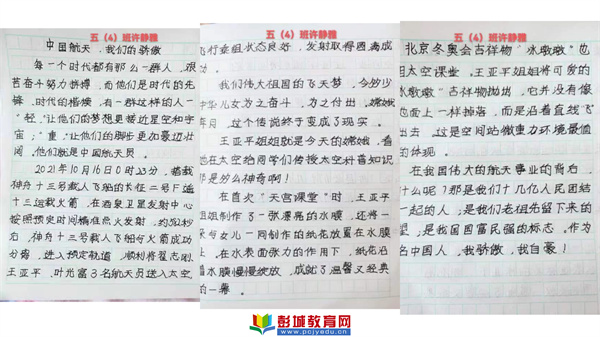 五（4）班许静雅
中国航天，我们的骄傲
每一个时代都有那么一群人，艰
苦奋斗努力拼搏，而他们是时代的先
锋，时代的楷模，有一群这样的人一
"轻"让他们的梦想更接近星空和宇
宙；"重"让他们的脚步更加豪迈壮
阔，他们就是中国航天员。
2021年10月16日0时23分，搭载
神舟十三号载人飞船的长征二号F遥
十三运载火箭，在酒泉卫星发射中心
按照预定时间精准点火发射，约582秒
后，神舟十三号载人飞船与火箭成功
分离，进入预定轨道，顺利将翟志刚、
王亚平、叶光富3名航天员送入太空，
五（4）班许静雅
飞行乘组状态良好，发射取得圆满成
功。
我们伟大祖国的飞天梦，令多少
中华儿女为之奋斗，为之付出，嫦娥
奔月，这个传说终于变成了现实。
王亚平姐姐就是今天的嫦娥，看
她在太空给同学们传授太空科普知识
那是多么神奇啊！
在首次"天宫课堂"时，王亚平
姐姐制作了一张漂亮的水膜，还将一
朵与女儿一同制作的纸花放置在水膜
上，在水表面张力的作用下，纸花沿
着水膜慢慢绽放，成就了温馨又经典
的一幕。
五（4）班许静雅
北京冬奥会吉祥物"冰墩墩"也
到太空课堂，王亚平姐姐将可爱的
"冰墩墩"吉祥物抛出，它并没有像
地面上一样掉落，而是沿着直线飞
出去，这是空间站微重力环境最值
的体现。
在我国伟大的航天事业的背后，
什么呢？那是我们十几亿人民团结
一起的人，是我们老祖先留下来的
望，是我国国富民强的标志，作为
名中国人，我骄傲，我自豪！
彭城教育网
www.pcjyedu.cn